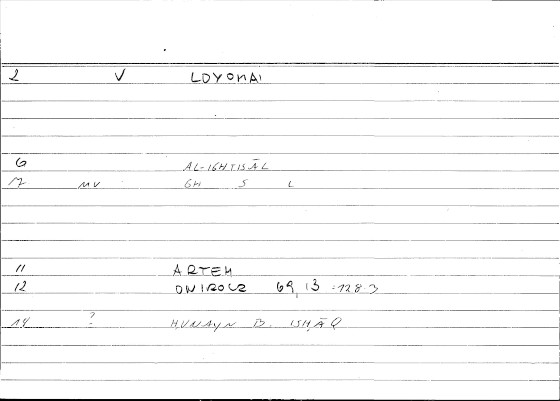 2 V LOYOMAI
6 AL-IGHTISĀL
17 MV GH S L
11 ARTEM
12 ONIROCR 69,13 =128.3
14 ? ḤUNAYN B. ISḤĀQ